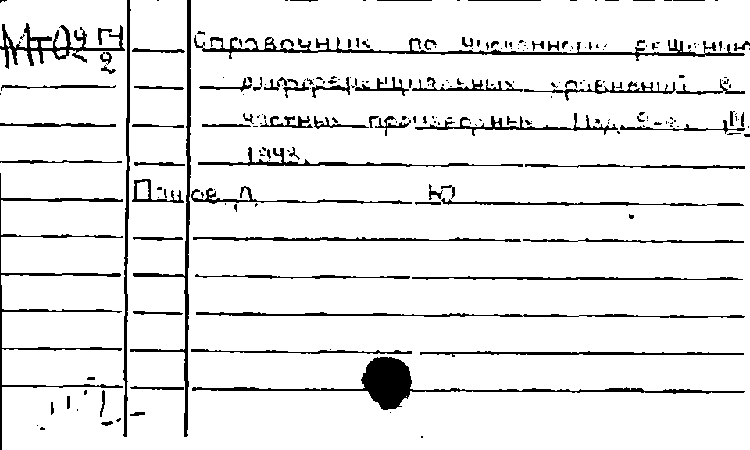 Справочник по численному решению
дифференциальных уравнений в
частных производных. Изд. 2-е.
1943.
Панов, Д. Ю